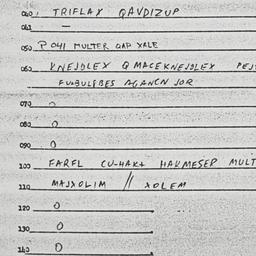 040 TRIFLAX QAVDIZUP
041 —
050 P 041 MULTER QAP XALE
060 KNEJOLEX Q MACEKNEJOLEX PEJ
FUBULFBES AGANCN JOR
070 0
080 0
090 0
100 FARFL CU-HAK+ HAKMESEP MULT
110 MAJXOLIM // XOLEM
120 0
130 0
140 0